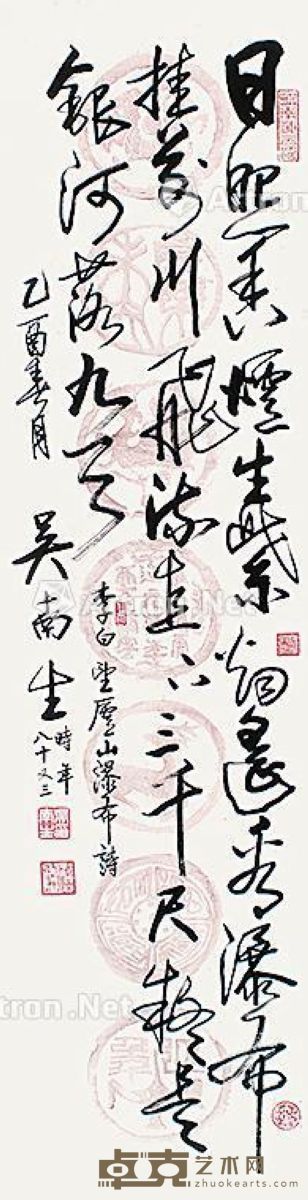 日照香爐生紫烟遥看瀑布
挂前川飛流直下三千尺疑是
銀河落九天
李白望廬山瀑布詩
乙酉春月
吴南生
時年
八十又三
Artron.Net
卓克艺术网
www.zhuokearts.com